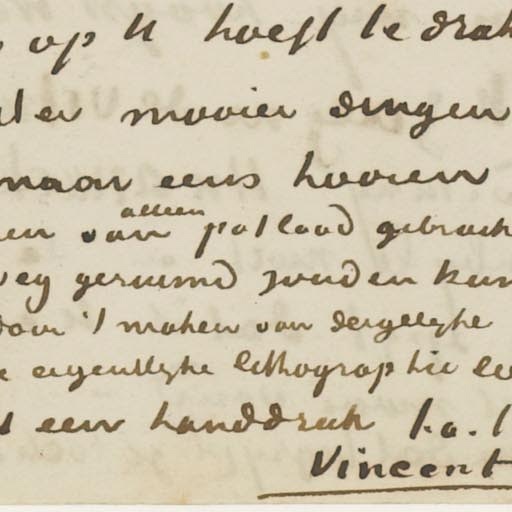 op U hoeft te druk
mooier dingen
maar eens hooren
van alleen potlood gebrach
weg geruimd zouden kun
door 't maken van dergelyke
eigentlyke lithographie le
een handdruk t.a. t
Vincent